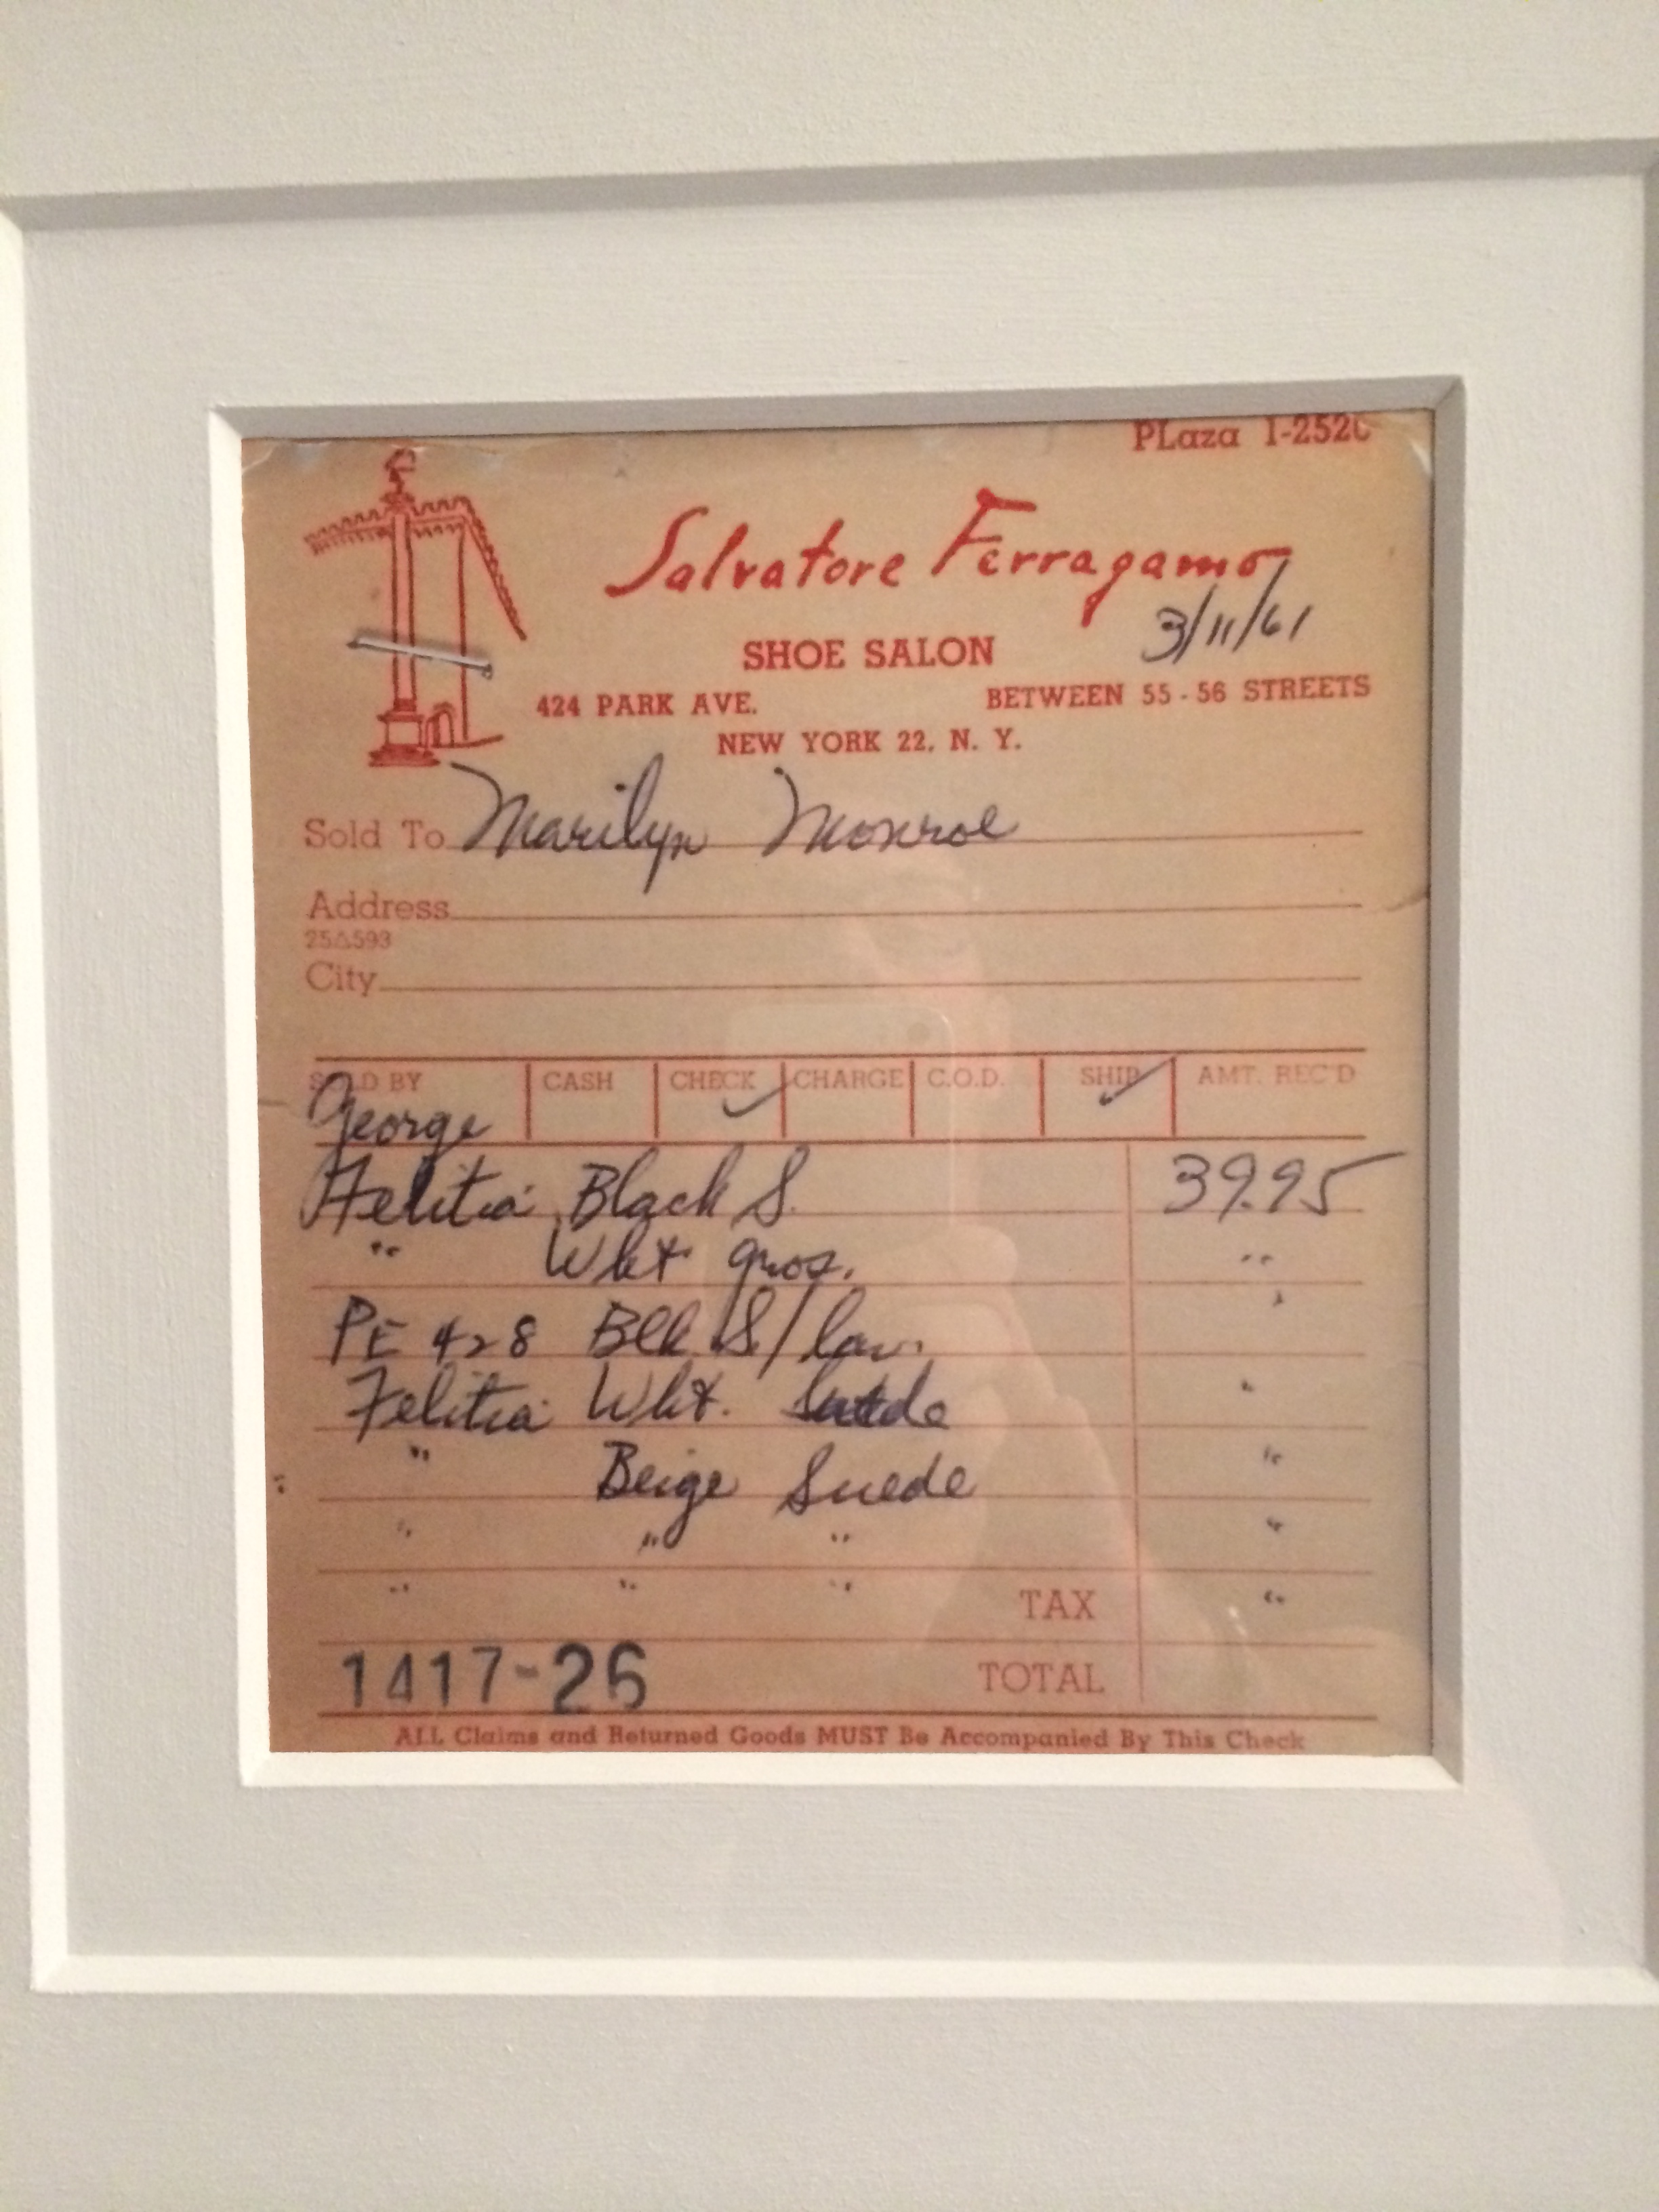 PLaza 1-2520
Salvatore Ferragamo
3/11/61
SHOE SALON
424 PARK AVE. BETWEEN 55-56 STREETS
NEW YORK 22, N. Y.
Sold To Marilyn Monroe
Address
25△593
City
SOLD BY CASH CHECK CHARGE C.O.D. SHIP AMT. REC'D
George ✓ ✓
Felitia Black S. 39.95
" Wht gros. "
PE 428 Blk S/ "
Felitia Wht. Suede "
" Beige Suede "
" " " "
" " " TAX "
1417-26 TOTAL
ALL Claims and Returned Goods MUST Be Accompanied By This Check